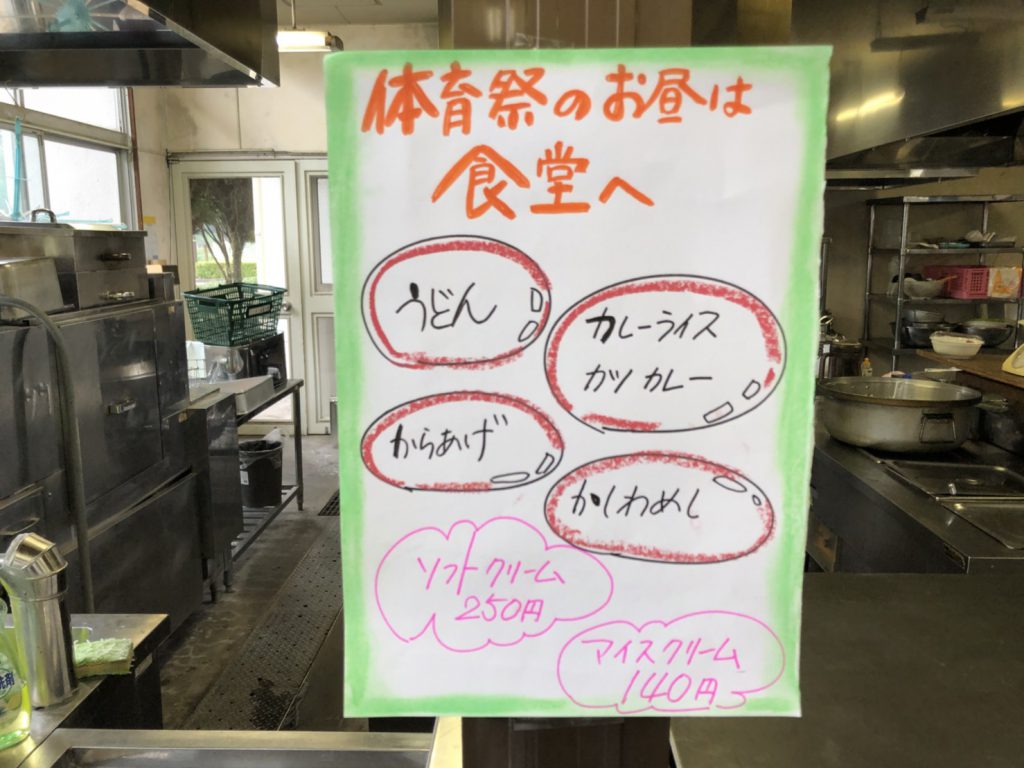 体育祭のお昼は
食堂へ
うどん
カレーライス
カツカレー
からあげ
かしわめし
ソフトクリーム
250円
アイスクリーム
140円
洗剤